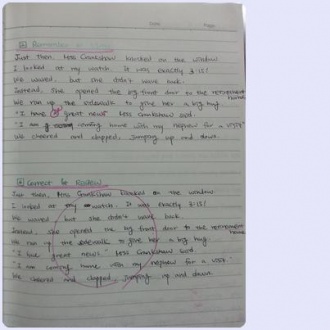 Date: Page:
Just then, Mrs Crankshaw knocked on the window
I looked at my watch. It was exactly 3:15!
We waved, but she didn't wave back
Instead, she opened the big front door to the retirement home
We ran up the sidewalk to give her a big hug
"I have great news" Mrs Crankshaw said.
"I am coming home with my nephew for a visit"
We cheered and clapped, jumping up and down.
Correct &
Just then, Mrs Crankshaw knocked on the window
I looked at my watch. It was exactly 3:15!
We waved but she didn't wave back
Instead, she opened the big front door to the retirement home
We ran up the sidewalk to give her a big hug
"I have great news" Mrs Crankshaw said.
"I am coming home with my nephew for a visit"
We cheered and clapped jumping up and down.